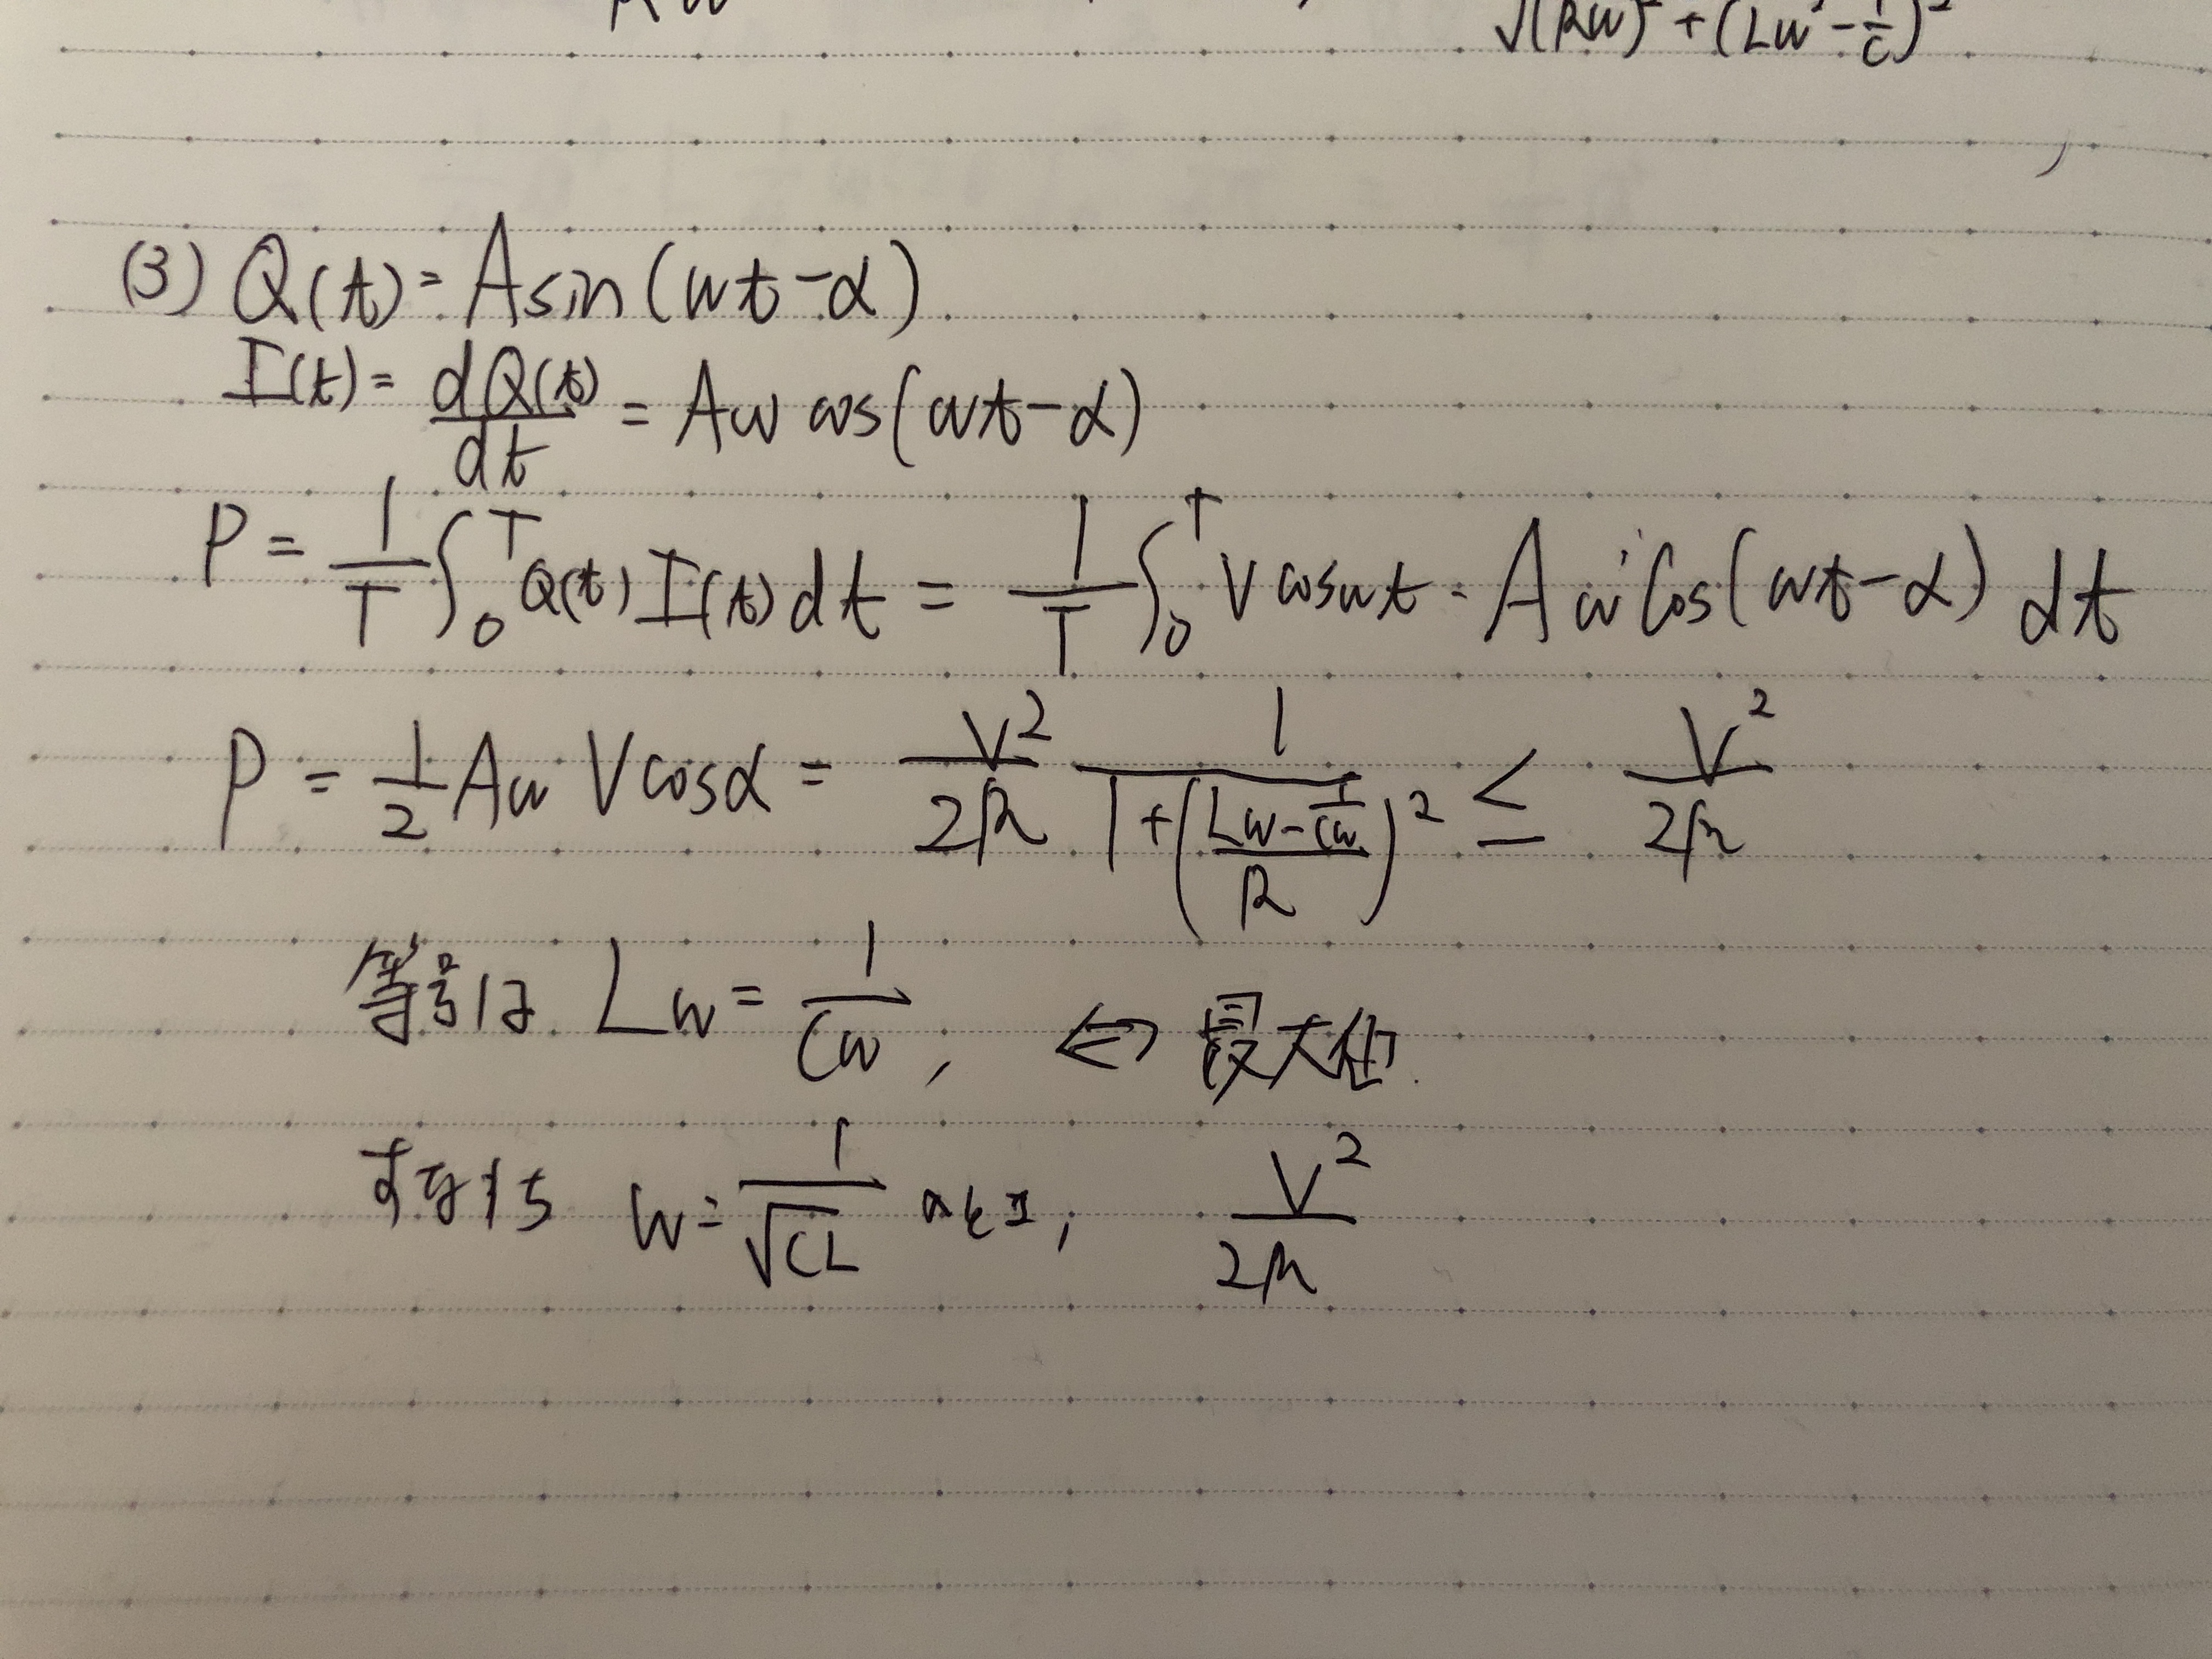 √(Rω)² + (Lω² - 1/C)²
(3) Q(t) = A sin(ωt - α)
I(t) = dQ(t)/dt = Aω cos(ωt - α)
P = 1/T ∫₀ᵀ Q(t) I(t) dt = 1/T ∫₀ᵀ V cosωt · Aω cos(ωt - α) dt
P = 1/2 Aω V cosα = V²/2R 1/(1 + ((Lω - 1/Cω)/R)²) ≤ V²/2R
等号は Lω = 1/Cω , ⇔ 最大値.
すなわち ω = 1/√CL のとき, V²/2R